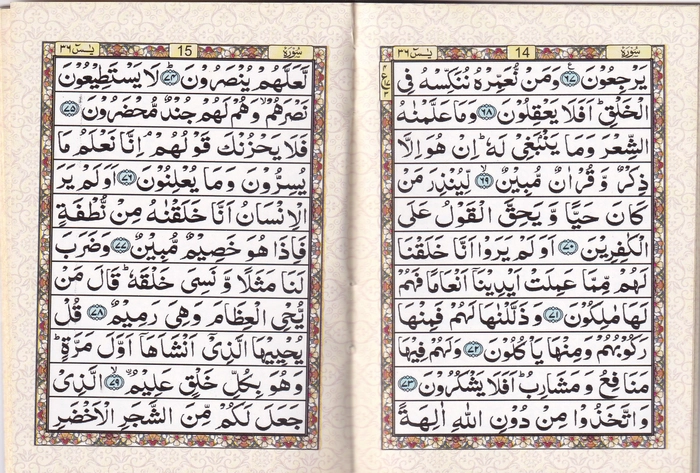 سُوْرَة 14 يٰسٓ ٣٦
يَرْجِعُوْنَ ﴿٦٧﴾ وَمَنْ نُّعَمِّرْهُ نُنَكِّسْهُ فِى
الْخَلْقِ ؕ اَفَلَا يَعْقِلُوْنَ ﴿٦٨﴾ وَمَا عَلَّمْنٰهُ
الشِّعْرَ وَمَا يَنْۢبَغِىْ لَهٗ ؕ اِنْ هُوَ اِلَّا
ذِكْرٌ وَّقُرْاٰنٌ مُّبِيْنٌ ﴿٦٩﴾ لِّيُنْذِرَ مَنْ
كَانَ حَيًّا وَّيَحِقَّ الْقَوْلُ عَلَى
الْكٰفِرِيْنَ ﴿٧٠﴾ اَوَلَمْ يَرَوْا اَنَّا خَلَقْنَا
لَهُمْ مِّمَّا عَمِلَتْ اَيْدِيْنَاۤ اَنْعَامًا فَهُمْ
لَهَا مٰلِكُوْنَ ﴿٧١﴾ وَذَلَّلْنٰهَا لَهُمْ فَمِنْهَا
رَكُوْبُهُمْ وَمِنْهَا يَاْكُلُوْنَ ﴿٧٢﴾ وَلَهُمْ فِيْهَا
مَنَافِعُ وَمَشَارِبُ ؕ اَفَلَا يَشْكُرُوْنَ ﴿٧٣﴾
وَاتَّخَذُوْا مِنْ دُوْنِ اللّٰهِ اٰلِهَةً
سُوْرَة 15 يٰسٓ ٣٦
لَّعَلَّهُمْ يُنْصَرُوْنَ ﴿٧٤﴾ لَا يَسْتَطِيْعُوْنَ
نَصْرَهُمْ ۙ وَهُمْ لَهُمْ جُنْدٌ مُّحْضَرُوْنَ ﴿٧٥﴾
فَلَا يَحْزُنْكَ قَوْلُهُمْ ۘ اِنَّا نَعْلَمُ مَا
يُسِرُّوْنَ وَمَا يُعْلِنُوْنَ ﴿٧٦﴾ اَوَلَمْ يَرَ
الْاِنْسَانُ اَنَّا خَلَقْنٰهُ مِنْ نُّطْفَةٍ
فَاِذَا هُوَ خَصِيْمٌ مُّبِيْنٌ ﴿٧٧﴾ وَضَرَبَ
لَنَا مَثَلًا وَّنَسِىَ خَلْقَهٗ ؕ قَالَ مَنْ
يُّحْىِ الْعِظَامَ وَهِىَ رَمِيْمٌ ﴿٧٨﴾ قُلْ
يُحْيِيْهَا الَّذِىْۤ اَنْشَاَهَاۤ اَوَّلَ مَرَّةٍ ؕ
وَهُوَ بِكُلِّ خَلْقٍ عَلِيْمٌ ۙ ﴿٧٩﴾ الَّذِىْ
جَعَلَ لَكُمْ مِّنَ الشَّجَرِ الْاَخْضَرِ